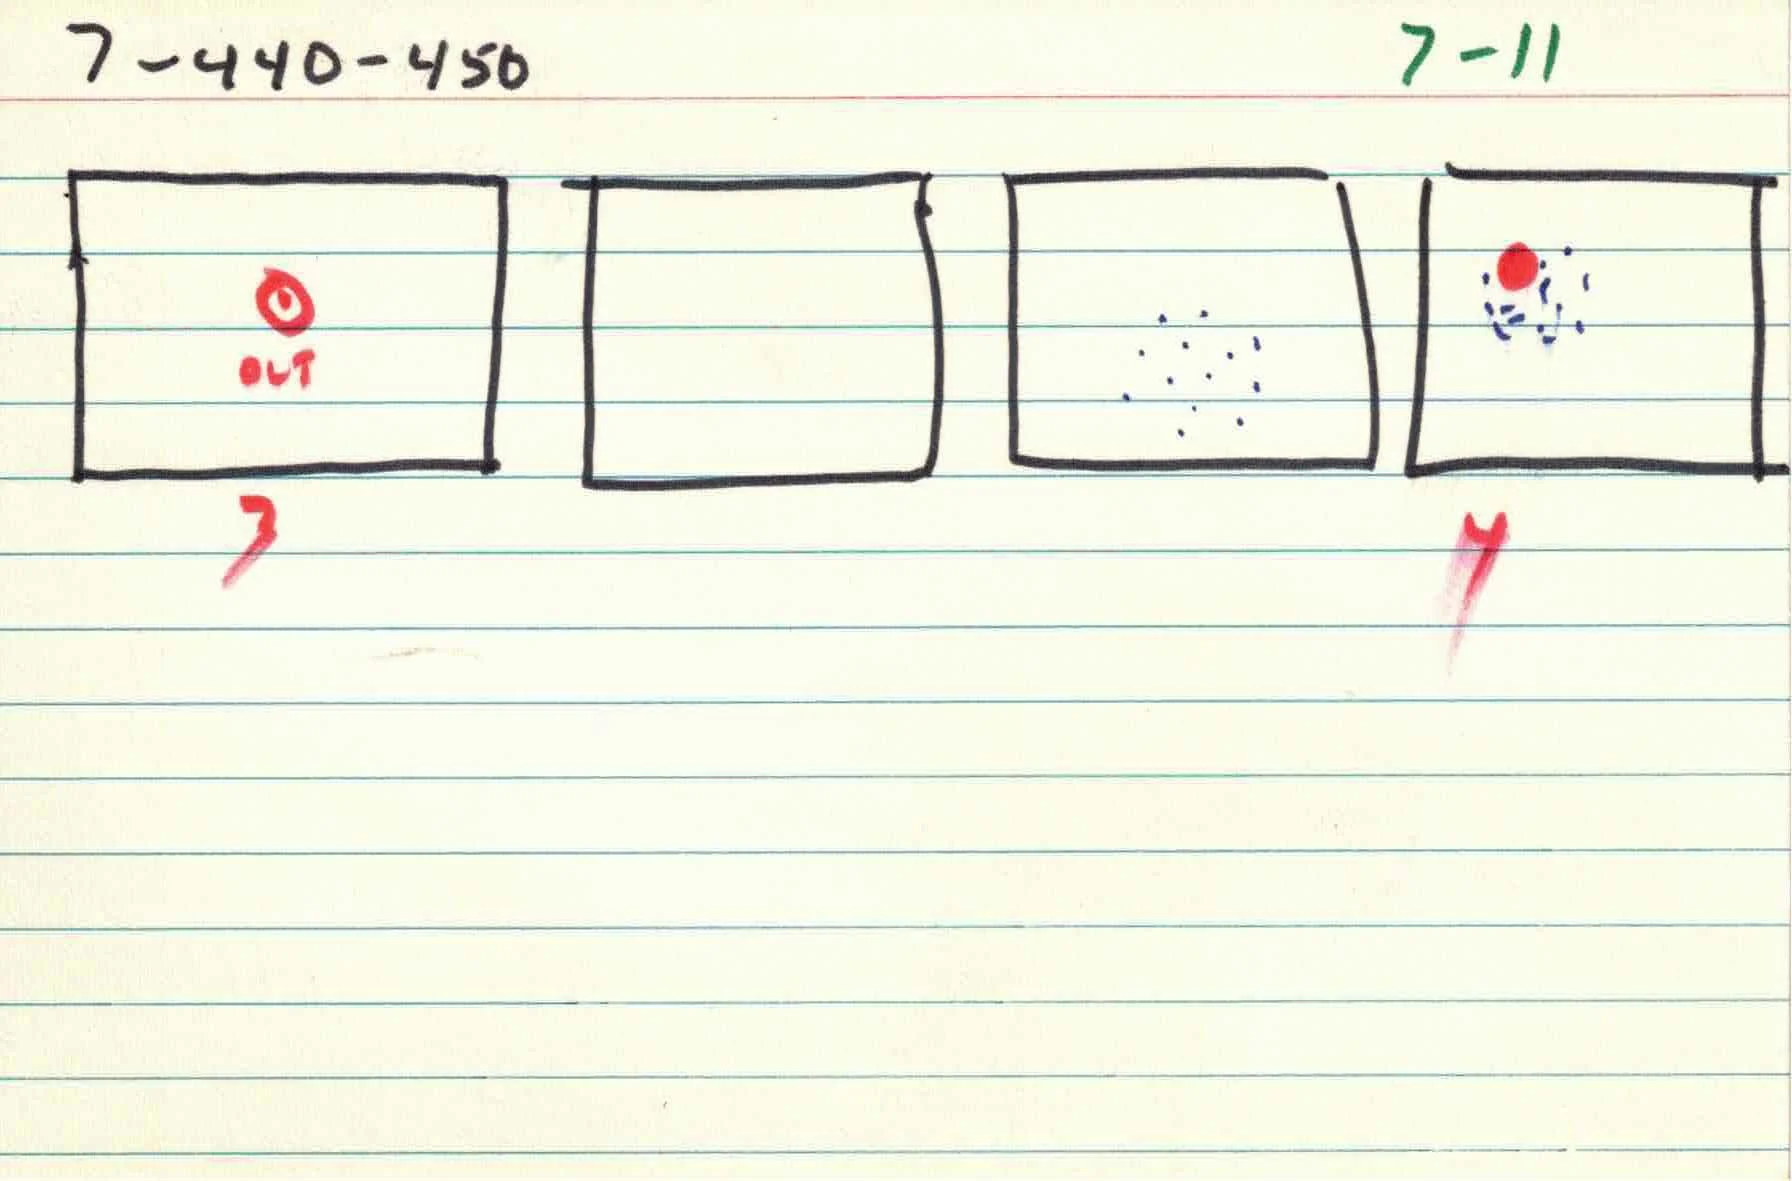 7-440-450 7-11
OUT
3 4